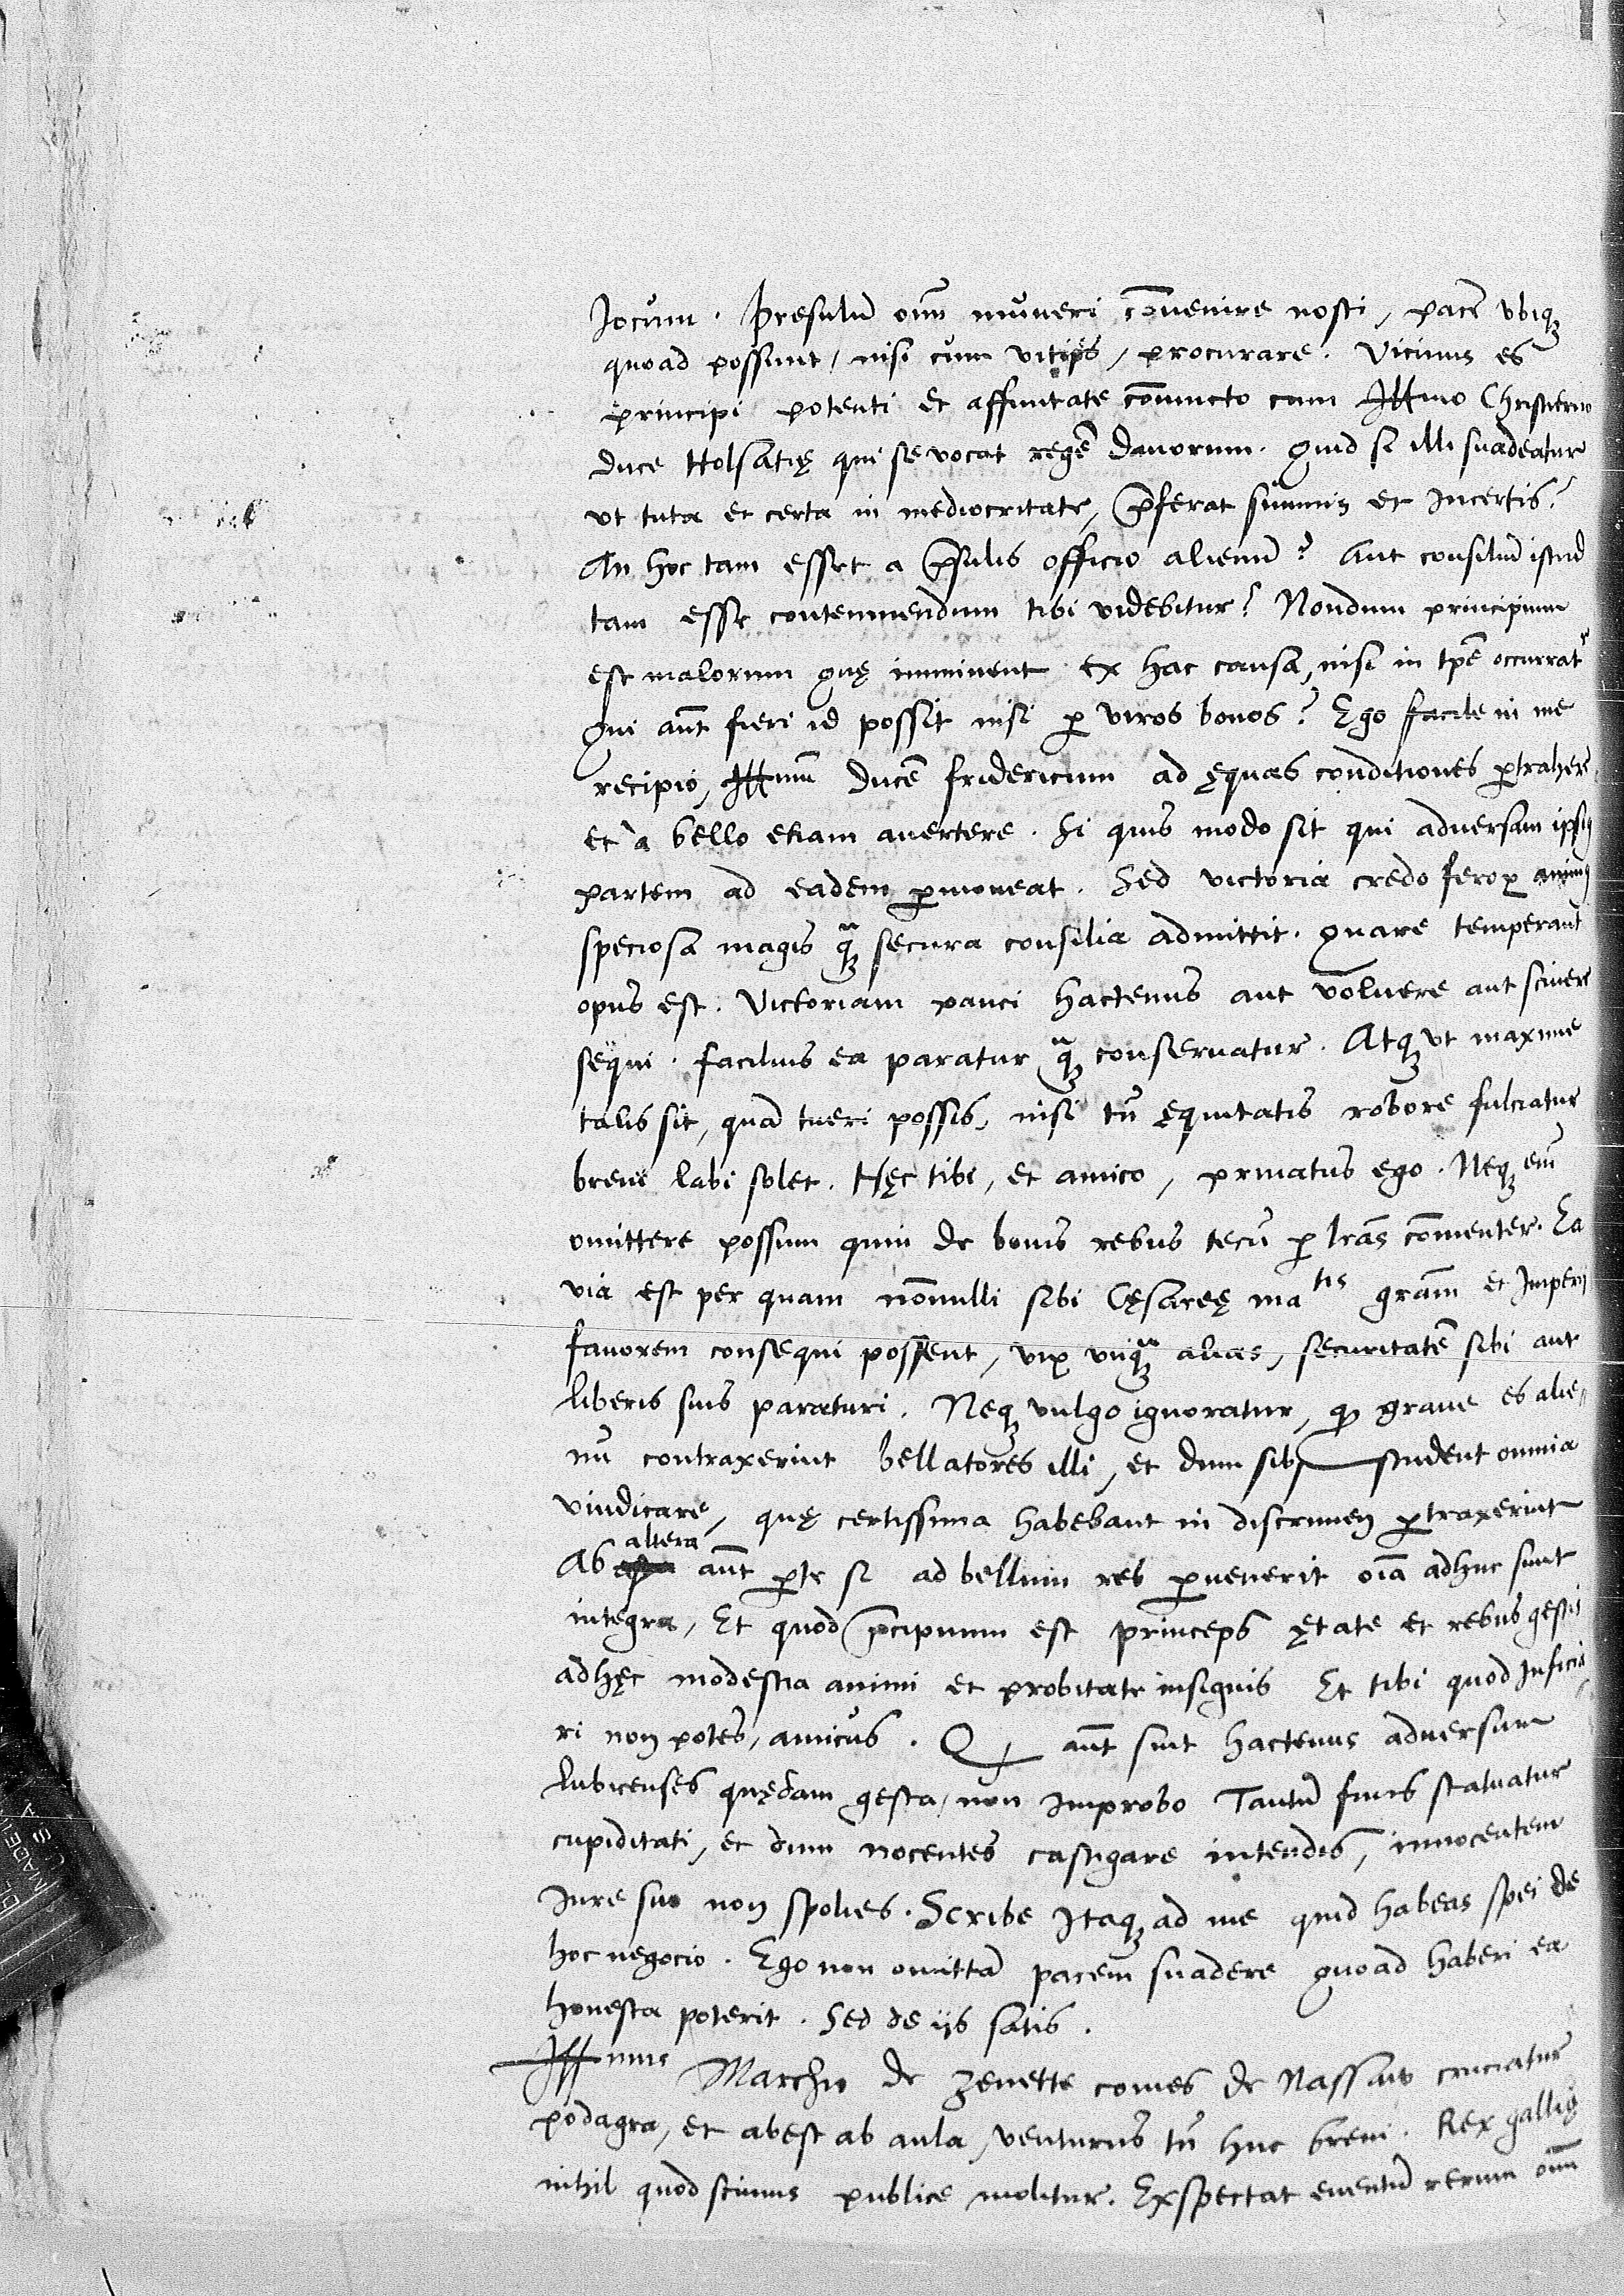 Jocum. Presulum omnium muneri convenire nosti, pacem vbique
quoad possunt, nisi cum vitiis, procurare. Vicinus es
principi potenti et affinitate coniuncto cum Illmo Christierno
duce Holsatię qui se vocat regem Danorum. Quid si illi suadeatur
vt tuta et certa in mediocritate, preferat summis et incertis?
An hoc tam esset a presulis officio alienum? Aut consilium istud
tam esse contemnendum tibi videbitur? Nondum principium
est malorum quę imminent ex hac causa, nisi in tempore occurratur
Qui autem fieri id possit nisi per viros bonos? Ego facile in me
recipio, Illmum ducem Fridericum ad ęquas conditiones pertrahere,
et à bello etiam avertere. Si quis modo sit qui adversam ipsius
partem ad eadem permoveat. Sed victoria credo ferox animus
speciosa magis quam secura consilia admittit. Quare temperante
opus est. Victoriam pauci hactenus aut voluere aut scivere
sequi. facilius ea paratur quam conservatur. Atque vt maxime
talis sit, quam tueri possis, nisi tamen ęquitatis robore fulciatur
brevi labi solet. Hęc tibi, et amico, privatus ego. Neque enim
omittere possum quin de bonis rebus tecum per literas commenter. Ea
via est per quam nonnulli sibi Cęsareę matis gratiam et Imperii
favorem consequi possent, vix vnquam alias, securitatem sibi aut
liberis suis paraturi. Neque vulgo ignoratur, quod grave es alie-
num contraxerint bellatores illi, et dum sibi student omnia
vindicare, quę certissima habebant in discrimen pertraxerint
Ab altera autem parte si ad bellum res pervenerit omnia adhuc sunt
integra, Et quod precipuum est princeps ętate et rebus gestis
adhęc modestia animi et probitate insignis Et tibi quod inficia-
ri non potes, amicus. Quod autem sint hactenus adversum
lubicenses quędam gesta, non improbo Tantum finis statuatur
cupiditati, et dum nocentes castigare intendis, innocentem
iure suo non spolies. Scribe Itaque ad me quid habeas spei de
hoc negocio. Ego non omittam pacem suadere quoad haberi ea
honesta poterit. Sed de iis satis.
Illmus Marchio de Zenette comes de Nassaw cruciatur
podagra, et abest ab aula, venturus tamen huc brevi. Rex Gallię
nihil quod scimus publice molitur. Exspectat eventum rerum omnium